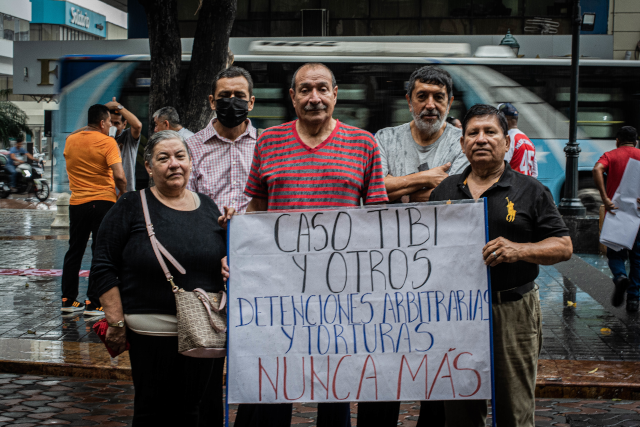 CASO TIBI
Y OTROS
DETENCIONES ARBITRARIAS
Y TORTURAS
NUNCA MÁS